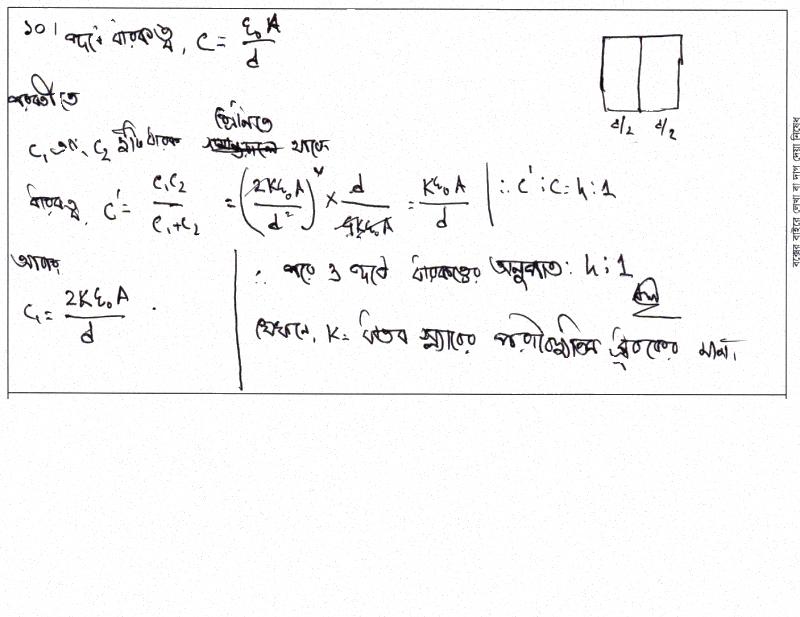 ১০। প্রথমে ধারকত্ব, C = ε₀A/d
d/2 d/2
পরবর্তীতে
C₁ এবং C₂ দুটি ধারক শ্রেণিতে থাকে
ধারকত্ব, C' = C₁C₂/(C₁+C₂) = (2Kε₀A/d²)² × d/4Kε₀A = Kε₀A/d ∴ C' : C = k : 1
আবার
C₁ = 2Kε₀A/d
∴ পরে ও প্রথমে ধারকত্বের অনুপাত: k : 1
যেখানে, K = ভিতর স্ল্যাবের পরাবৈদ্যুতিক ধ্রুবকের মান।
বক্সের বাইরে লেখা বা দাগ দেয়া নিষেধ